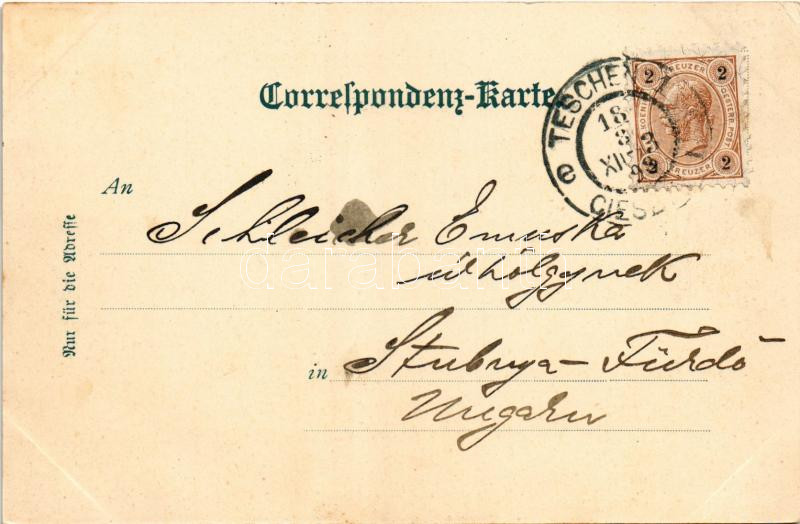 Correspondenz-Karte
2 KREUZER 2
TESCHEN
18
8
XII
CIESZ
2 KREUZER 2
An
Schleicher Emuska
úrhölgynek
in
Stubnya-Fürdő
Ungarn
Nur für die Adresse
darabanth